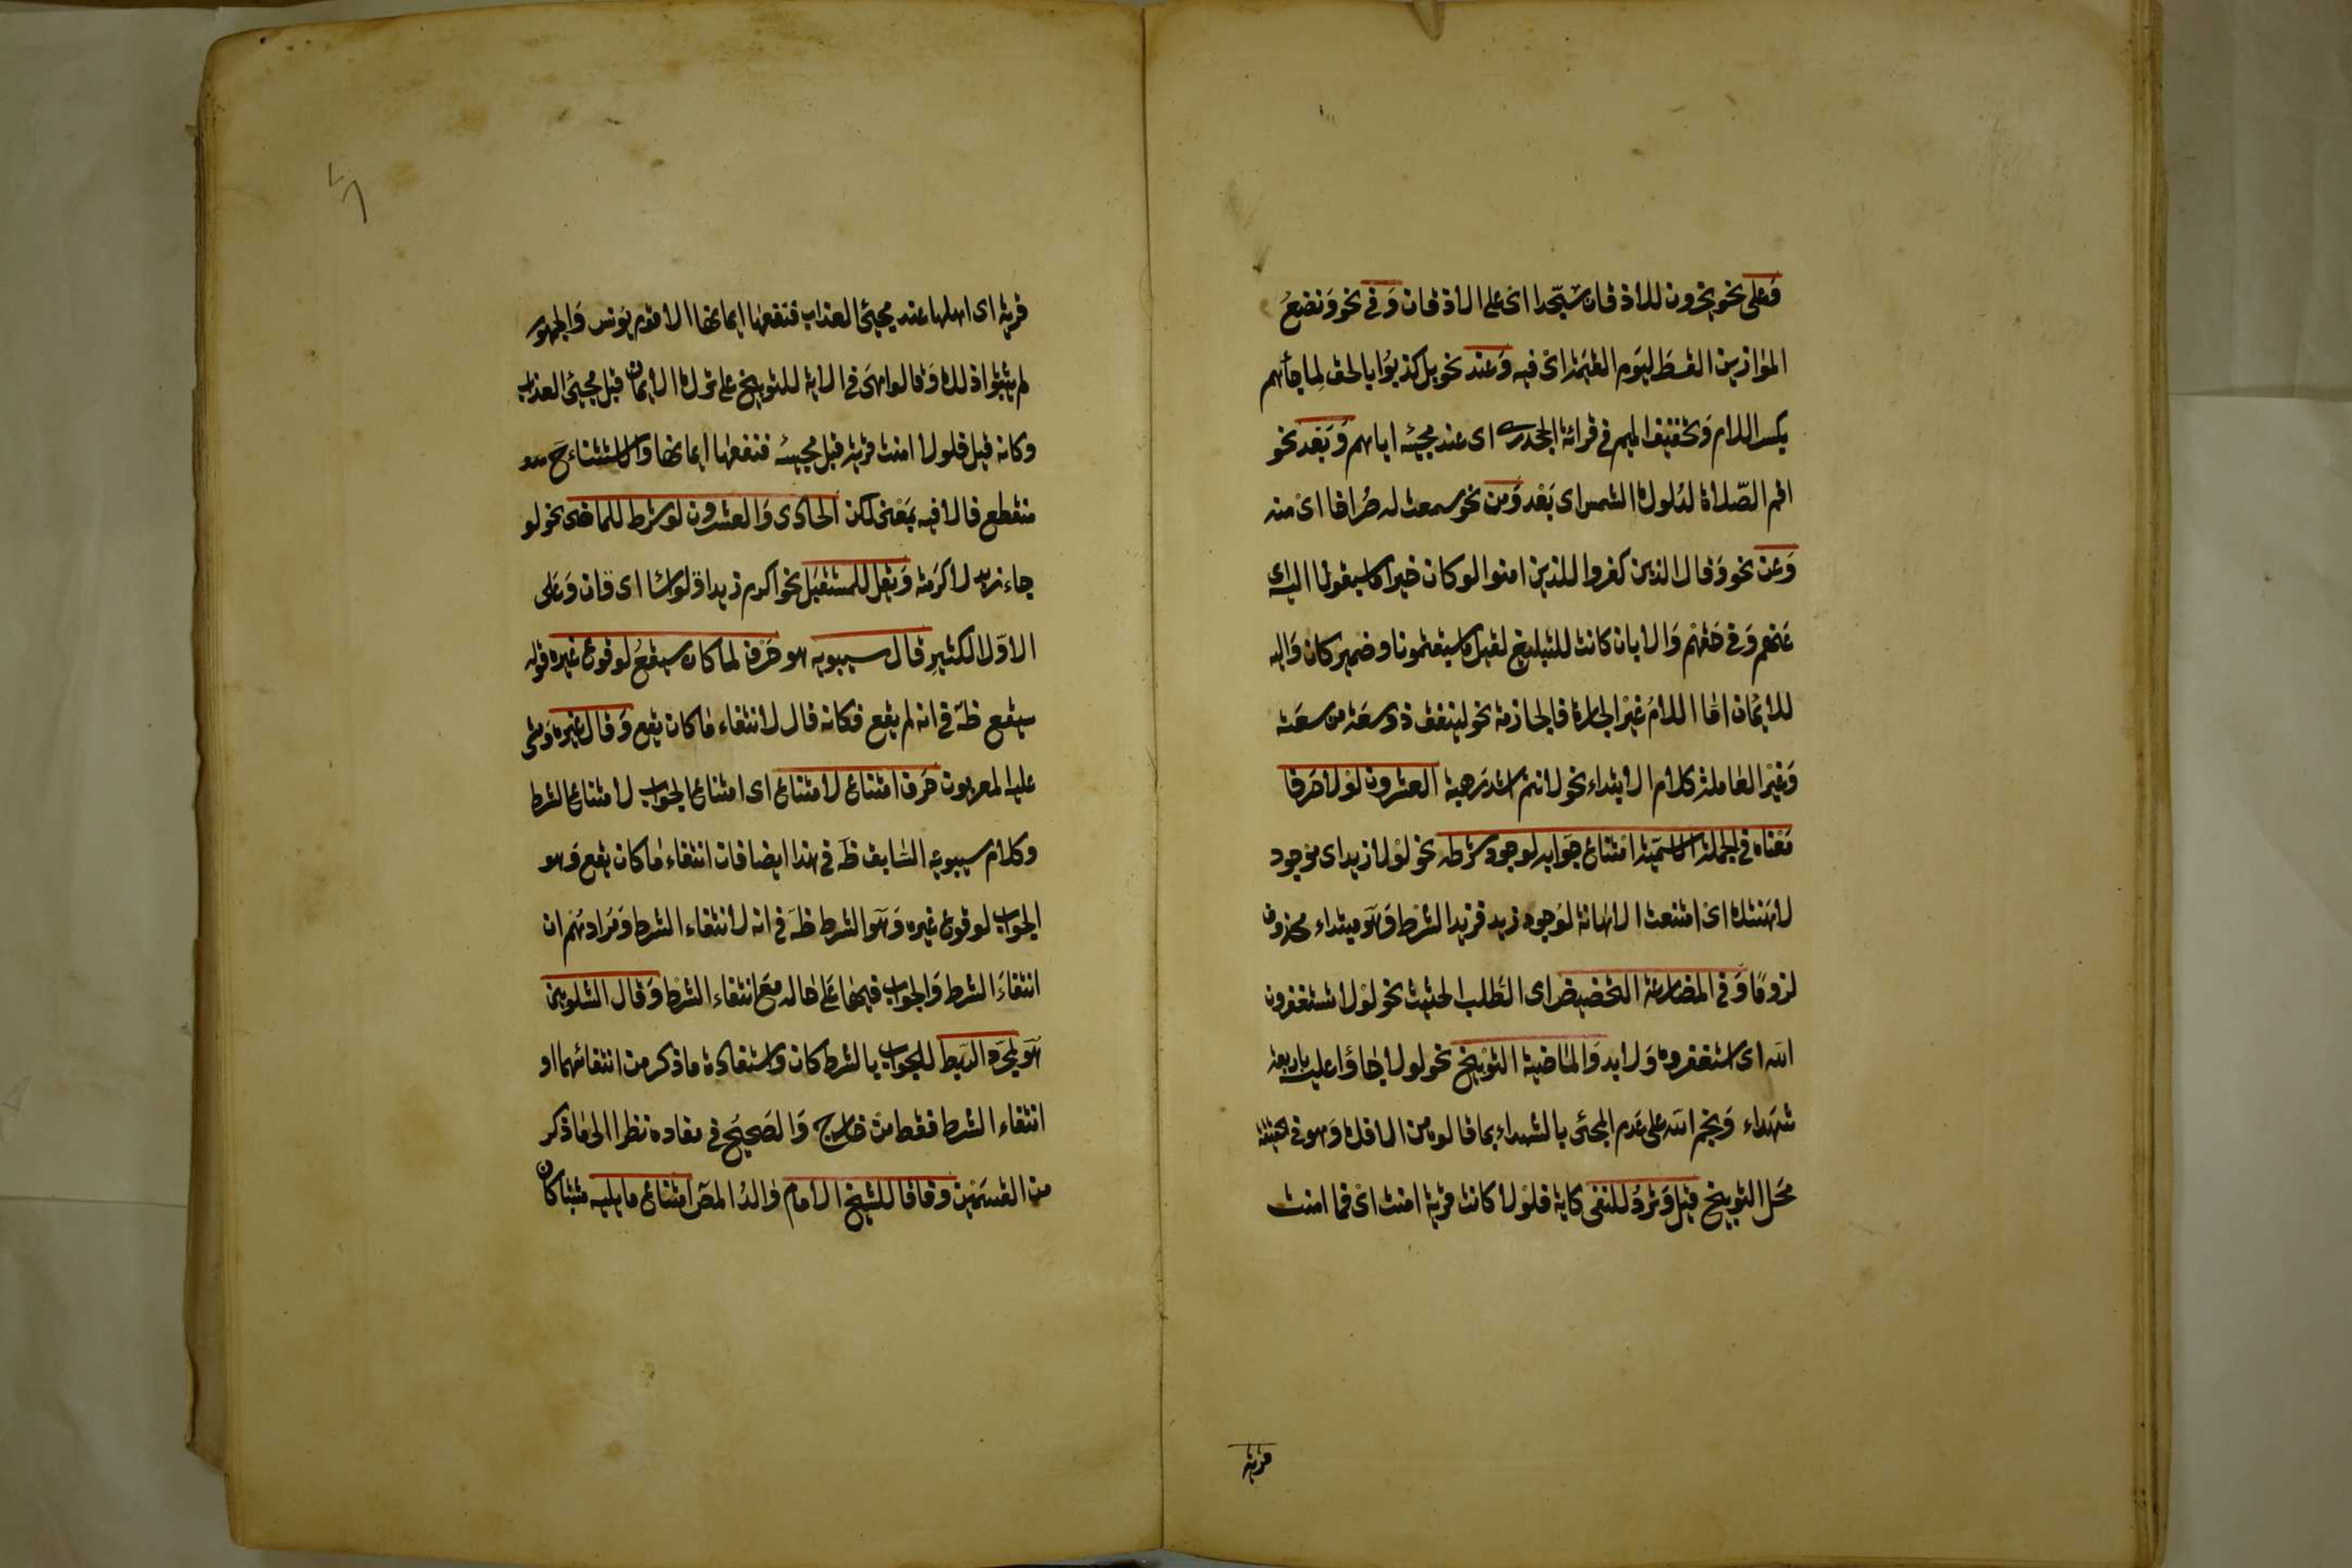 وَعلى نحو يخرون للاذقان سجّدا اى على الاذقان وَفى نحو وَنضعُ
الموَازين القسطَ ليَوم القيٰمة اىْ فيه وَعند نحو بل كذبوُا بالحق لِما جاءهم
بكسر اللام وَتخفيف الميم فى قرائة الجحدرى اى عند مجيئه اياهم وَبَعْد نحو
اقم الصّلاة لدُلوك الشمس اى بَعْد وَمن نحو سمعت له صُراخا اىْ منه
وَعَن نحو وَقال الذين كفروا للذين امنوا لو كان خيرا ما سبقونا اليه اى
عَنهم وَفى حَقهْم وَالا بان كانت للتبليغ لقيل ما سبقتمونا وضمير كان وَاليه
للايمٰان امّا اللامُ غيْر الجارة فالجازمة نحو لينفق ذو سعَة من سعَته
وَغيْر العٰاملة كلام الابتداء نحو لانتم اشد رَهبة العشرون لوْلا حَرف
مَعْناه فى الجملة الاسميّة امْتناع جوَابه لوجود شرطه نحو لوْلا زيد اى موْجود
لاهَنتك اىْ امتنعت الاهانة لوُجود زيد فزيد الشرْط وَهوَ مبتداء محذوف
لزومًا وَفى المضارعة التحضيض اى الطَلب الحثيث نحو لوْلا تستغفرون
الله اى استغفروه وَلابد وَالمٰاضية التوْبيخ نحو لولا جٰاؤا عليه باربعة
شهَداء وَبخهم الله على عَدم المجئى بالشهداء بما قالوه من الافك وَهو فى الحقيقة
مَحَل التوبيخ قيل وَترَدُ للنفى كاية فلوْلا كانت قرْية امنت اىْ فما امنت
قرية
قرية اى اهلها عند مجيئ العذاب فنفعهٰا ايمانها الا قوْم يوُنس وَالجمهور
لم يثبتوا ذلك وَقالوا هىَ فى الاية للتوبيخ على ترك الايمٰان قبل مجيئ العذاب
وكانه قيل فلولا امنت قرية قبل مجيئه فنفعهٰا ايمانها والاستثناء حَ
منقطع فالا فيه بمَعْنى لكن الحادى وَالعشرون لوْ شرط للمٰاضى نحو لو
جاء زيد لاكرَمته وَيقل للمستقبَل نحو اكرم زيدا وَلو اسٰا اى وَان وَعَلى
الاوّل الكثيرِ قال سيبويه هو حَرْف لما كان سيقعُ لوقوع غيره قوله
سيقع ظَ فى انه لم يقع فكانه قال لانتفاء مٰا كان يقع وَقال غيره وَمشى
عليه المعربون حَرف امتناع لامتناع اى امتناع الجوٰاب لامتناع الشرط
وكلام سيبويه السّابق ظَ فى هذا ايضا فان انتفاء مٰا كان يقع وَهو
الجواب لوقوع غيره وَهوَ الشرط ظَ فى انه لانتفاء الشرط وَمُرادهُم ان
انتفاءَ الشرط وَالجواب فيهمٰا عَلى حٰاله مَعَ انتفاء الشرْط وَقال الشلوبين
هوَ لمجرّد الرّبط للجوابِ بالشرط كان وَاستفادة ما ذكر من انتفائهما او
انتفاء الشرط فقط منْ خارج وَالصَحيَح فى مفاده نظرا الى مٰا ذكر
من القسمَيْن وفاقا للشيخ الامام وٰالد المصَ امْتناع ما يليه مثبتا كان